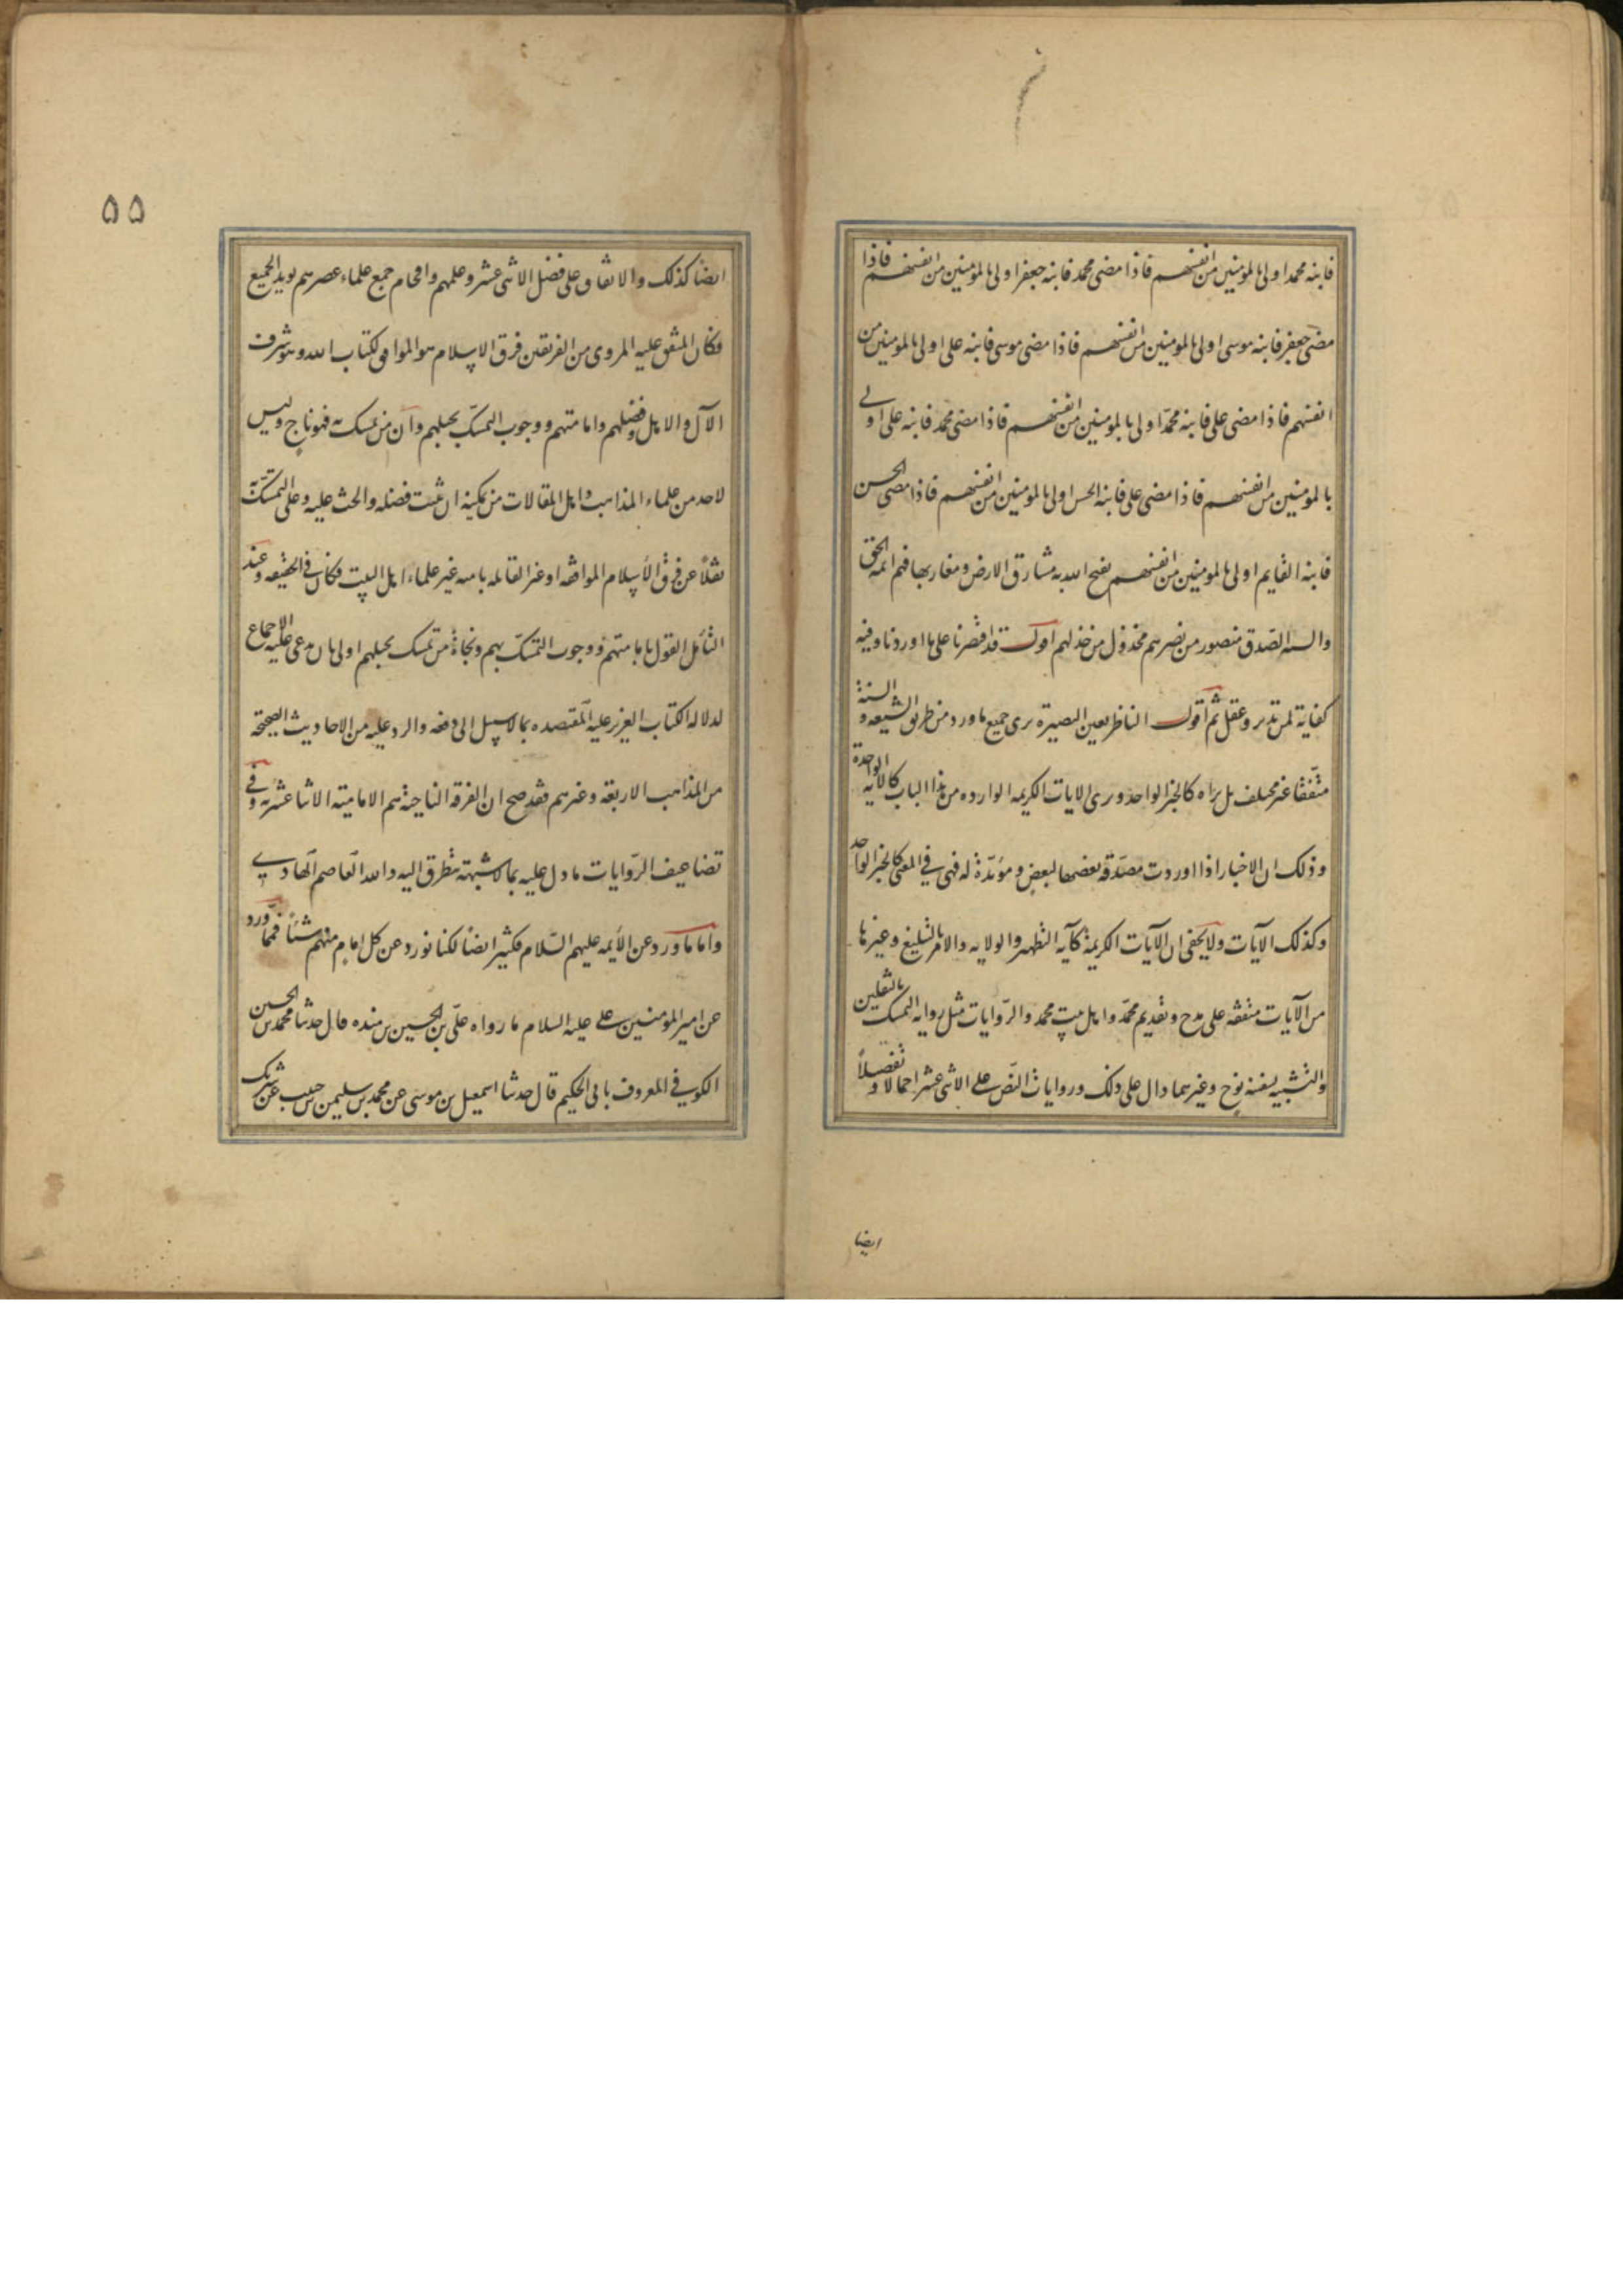 فابنه محمد اولى بالمؤمنين من انفسهم فاذا مضى محمد فابنه جعفر اولى بالمؤمنين من انفسهم فاذا
مضى جعفر فابنه موسى اولى بالمؤمنين من انفسهم فاذا مضى موسى فابنه على اولى بالمؤمنين من
انفسهم فاذا مضى على فابنه محمّد اولى بالمؤمنين من انفسهم فاذا مضى محمد فابنه على اولى
بالمؤمنين من انفسهم فاذا مضى على فابنه الحسن اولى بالمؤمنين من انفسهم فاذا مضى الحسن
فابنه القايم اولى بالمؤمنين من انفسهم يفتح الله به مشارق الارض ومغاربها فهم ائمة الحق
والسنة الصّدق منصور من نصرهم مخذول من خذلهم اقول قد اقتصرنا على ما اوردنا وفيه
كفاية لمن تدبر وعقل ثم اقول الناظر بعين البصيرة يرى جميع ماورد من طريق الشيعه و السنة
متّفقا غير مختلف بل يراه كالخبر الواحد ويرى الايات الكريمه الوارده من هذا الباب كالآية الواحدة
وذلك ان الاخبار اذا اوردت مصدّقة بعضها لبعض ومؤيّدة له فهى في المعنى كالخبر الواحد
وكذلك الآيات ولا يخفى ان الآيات الكريمة كآية التطهير والولايه والامر بالتبليغ وغيرها
من الآيات متفقه على مدح وتقديم محمّد واهل بيت محمد والرّوايات مثل رواية التمسك بالثقلين
والتشبيه بسفينة نوح وغيرهما دال على ذلك وروايات النّص على الاثنى عشر اجمالا و تفصيلاً
ايضا
۵۵
ايضاً كذلك والاتفاق على فضل الاثنى عشر وعلمهم وافحام جميع علماء عصرهم يويد الجميع
فكان المتفق عليه المروى من الفريقين فرق الاسلام هو الموافق لكتاب الله وهو شرف
الآل والاهل وفضلهم وامامتهم ووجوب التمسّك بحبلهم وان من تمسك به فهو ناج وليس
لاحد من علماء المذاهب واهل المقالات من يمكنه ان يثبت فضله والحث عليه وعلى التمسّك به
نقلاً عن فرق الاسلام الموافقه او غير القائله بامامته غير علماء اهل البيت فكان في الحقيقه وعند
التأمل القول بامامتهم ووجوب التمسّك بهم ونجاة من تمسك بحبلهم اولى بان يدعى عليه الاجماع
لدلالة الكتاب العزيز عليه المعتضده بما لا سبيل الى دفعه والرد عليه من الاحاديث الصحيحة
من المذاهب الاربعة وغيرهم فقد صح ان الفرقة الناجية هم الامامية الاثنا عشرية وفى
تضاعيف الرّوايات ما دل عليه بما لا شبهة تتطرق اليه والله العاصم الهادي
واما ماورد عن الأئمه عليهم السّلام فكثير ايضاً لكنا نورد عن كل امام منهم شيئاً فمما ورد
عن امير المؤمنين على عليه السلام ما رواه علىّ بن الحسين بن منده قال حدثنا محمّد بن الحسين
الكوفي المعروف بابى الحكيم قال حدثنا اسمعيل بن موسى عن محمد بن سليمن بن حبيب عن شريك